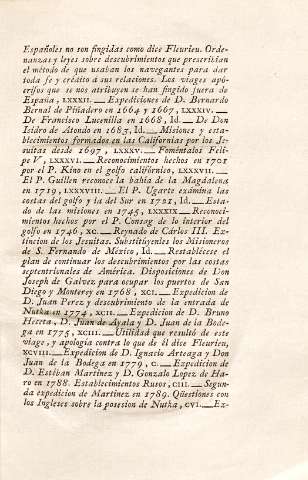 Españoles no son fingidas como dice Fleurieu. Orde-
nanzas y leyes sobre descubrimientos que prescribian
el método de que usaban los navegantes para dar
toda fe y crédito á sus relaciones. Los viages apó-
crifos que se nos atribuyen se han fingido fuera de
España, LXXXII. — Expediciones de D. Bernardo
Bernal de Piñadero en 1664 y 1667, LXXXIV. —
De Francisco Lucenilla en 1668, Id. — De Don
Isidro de Atondo en 1683, Id. — Misiones y esta-
blecimientos formados en las Californias por los Je-
suitas desde 1697, LXXXV. — Foméntalos Feli-
pe V, LXXXVI. — Reconocimientos hechos en 1701
por el P. Kino en el golfo califórnico, LXXXVII. —
El P. Guillen reconoce la bahía de la Magdalena
en 1719, LXXXVIII. — El P. Ugarte exâmina las
costas del golfo y la del Sur en 1721, Id. — Esta-
do de las misiones en 1745, LXXXIX. — Reconoci-
mientos hechos por el P. Consag de lo interior del
golfo en 1746, XC. — Reynado de Cárlos III. Ex-
tincion de los Jesuitas. Substitúyenles los Misioneros
de S. Fernando de México, Id. — Restablécese el
plan de continuar los descubrimientos por las costas
septentrionales de América. Disposiciones de Don
Joseph de Galvez para ocupar los puertos de San
Diego y Monterey en 1768, XCI. — Expedicion de
D. Juan Perez y descubrimiento de la entrada de
Nutka en 1774, XCII. — Expedicion de D. Bruno
Heceta, D. Juan de Ayala y D. Juan de la Bode-
ga en 1775, XCIII. — Utilidad que resultó de este
viage, y apología contra lo que de él dice Fleurieu,
XCVIII. — Expedicion de D. Ignacio Arteaga y Don
Juan de la Bodega en 1779, C. — Expedicion de
D. Estéban Martinez y D. Gonzalo Lopez de Ha-
ro en 1788. Establecimientos Rusos, CIII. — Segun-
da expedicion de Martinez en 1789. Qüestiones con
los Ingleses sobre la posesion de Nutka, CVI. — Ex-